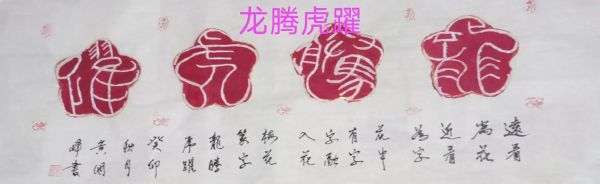 龙腾虎跃
龍騰虎躍
遠看
為花
近看
為字
花中
有字
字融
入花
梅花
篆字
龍騰
虎躍
癸卯
秋月
黄
書